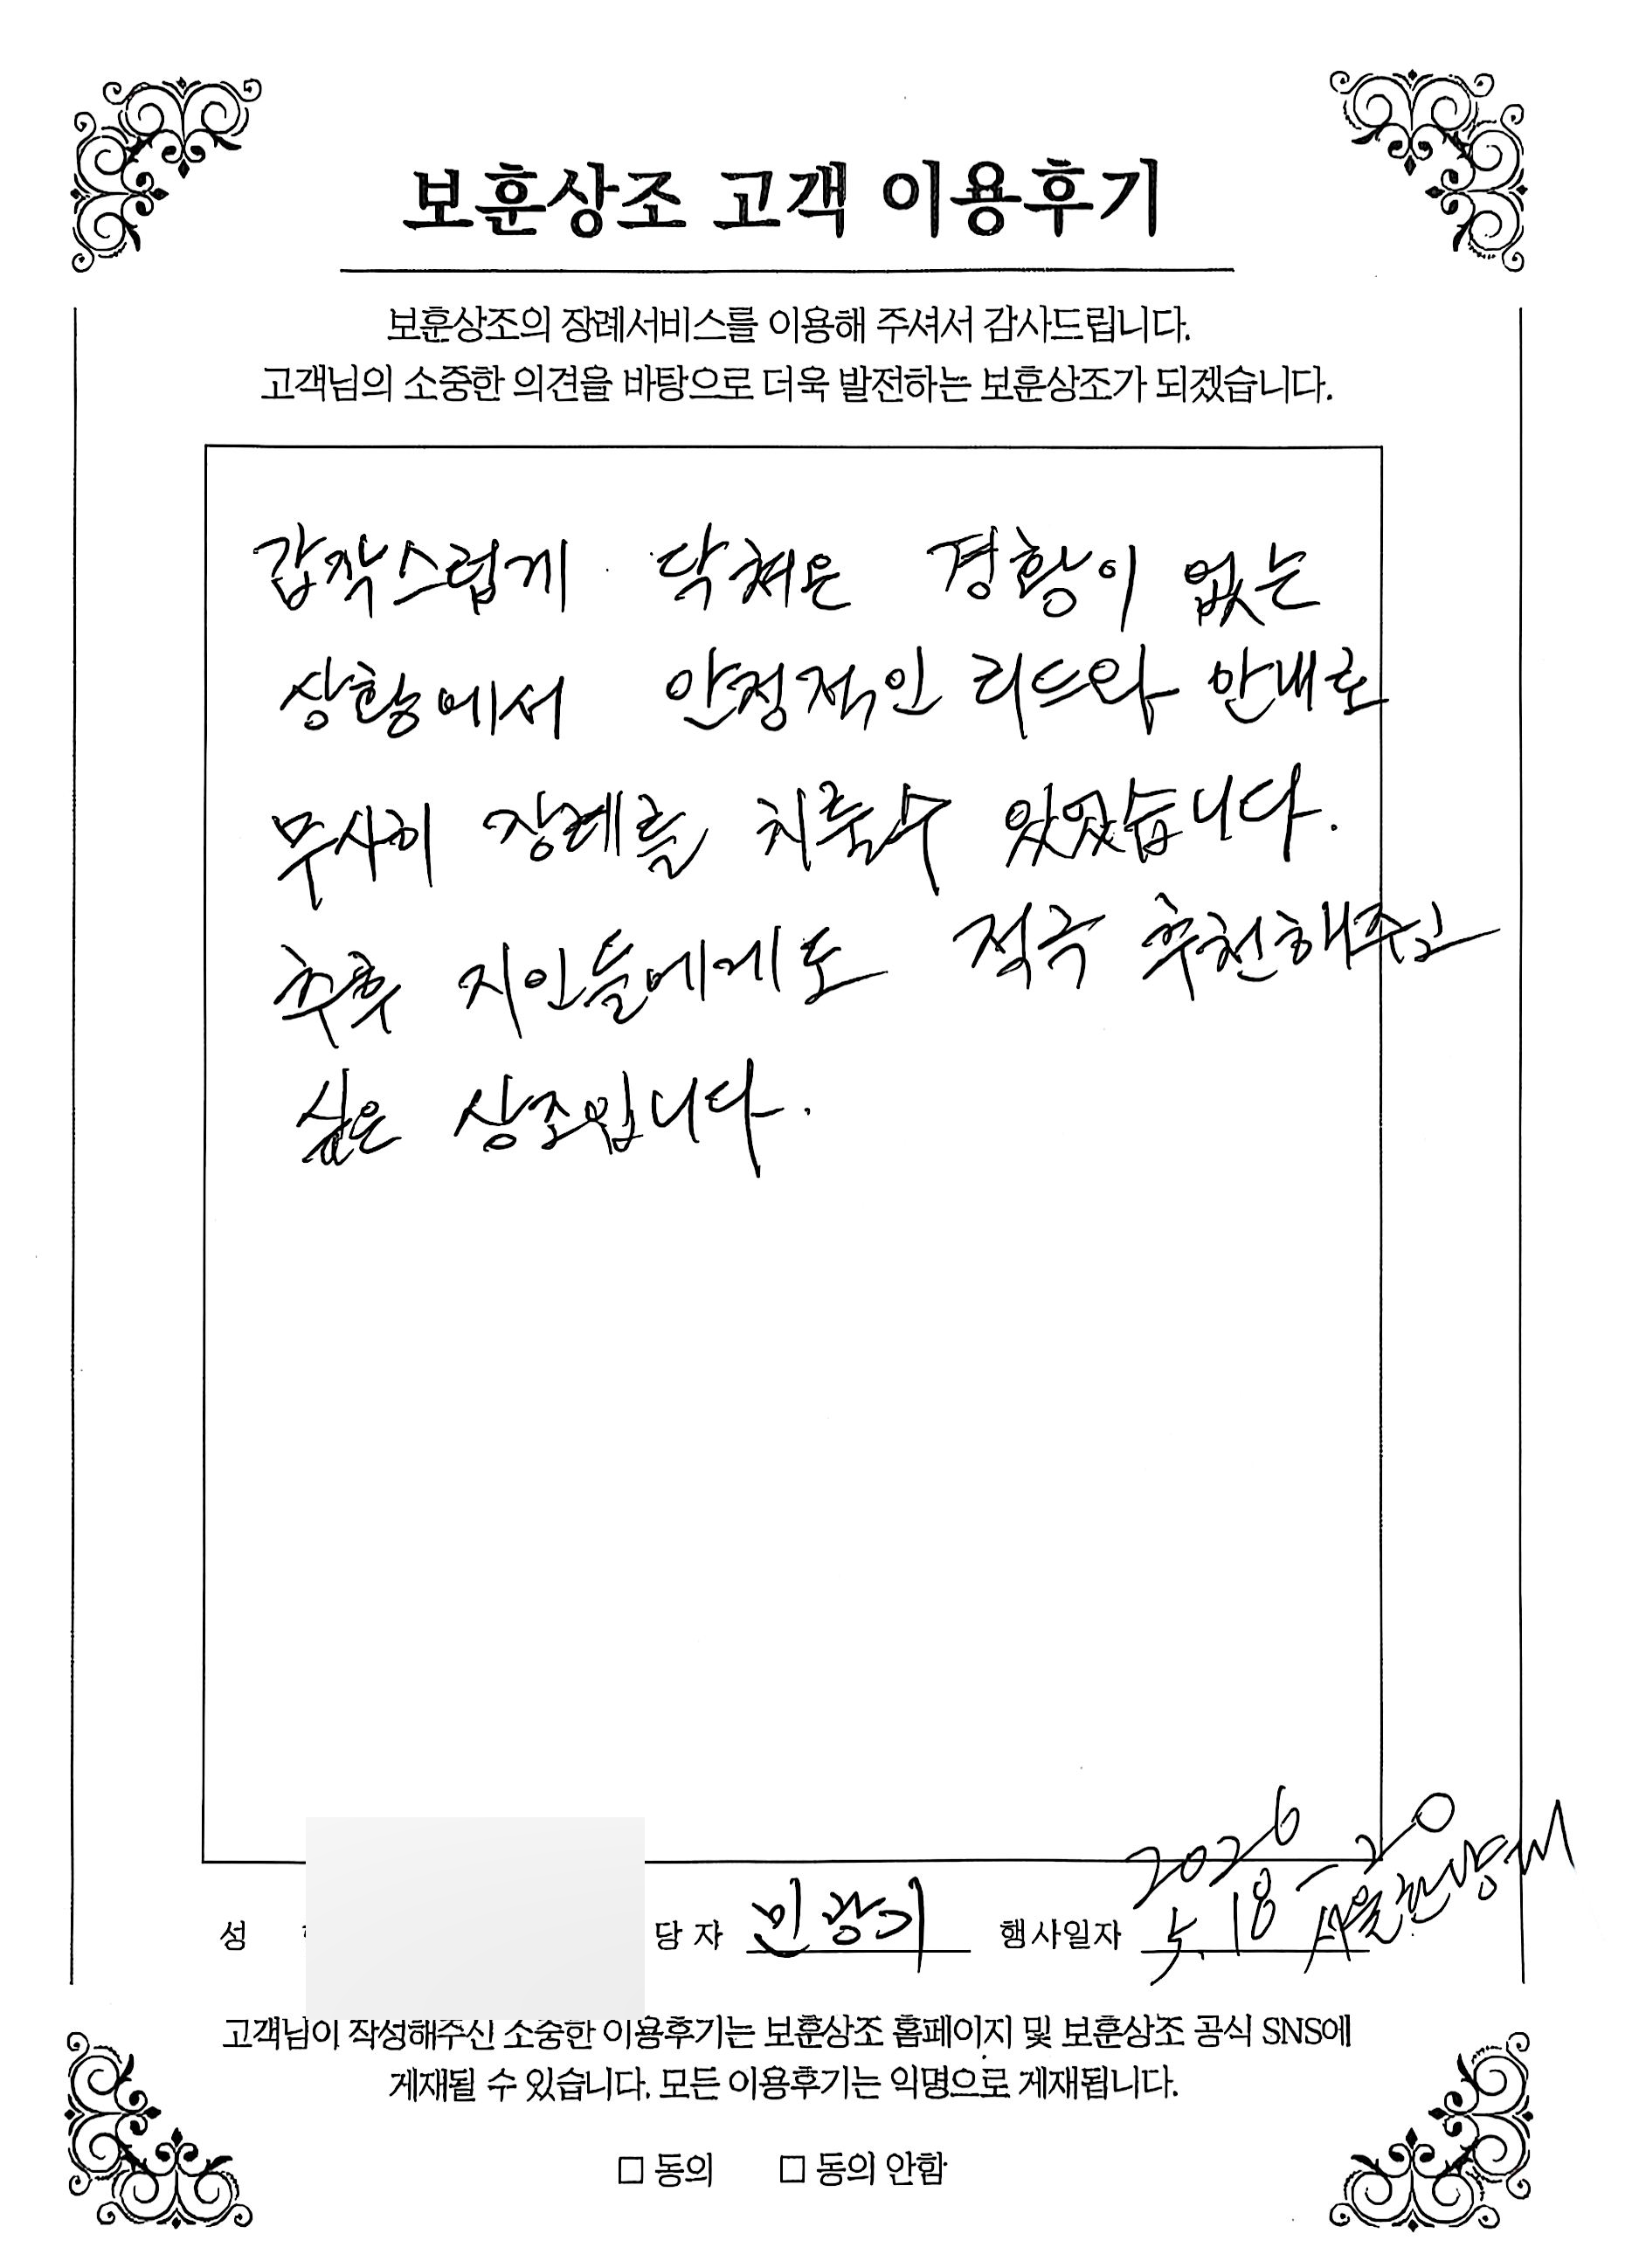 보훈상조 고객 이용후기
보훈상조의 장례서비스를 이용해 주셔서 감사드립니다.
고객님의 소중한 의견을 바탕으로 더욱 발전하는 보훈상조가 되겠습니다.
갑작스럽게 닥쳐온 경황이 없는
상황에서 안정적인 리드와 안내로
무사히 장례를 치룰수 있었습니다.
추후 지인들에게도 적극 추천해주고
싶은 상조입니다.
성 당 자 민광기 행사일자 2026 5. 18 - 20
고객님이 작성해주신 소중한 이용후기는 보훈상조 홈페이지 및 보훈상조 공식 SNS에
게재될 수 있습니다. 모든 이용후기는 익명으로 게재됩니다.
□ 동의 □ 동의 안함